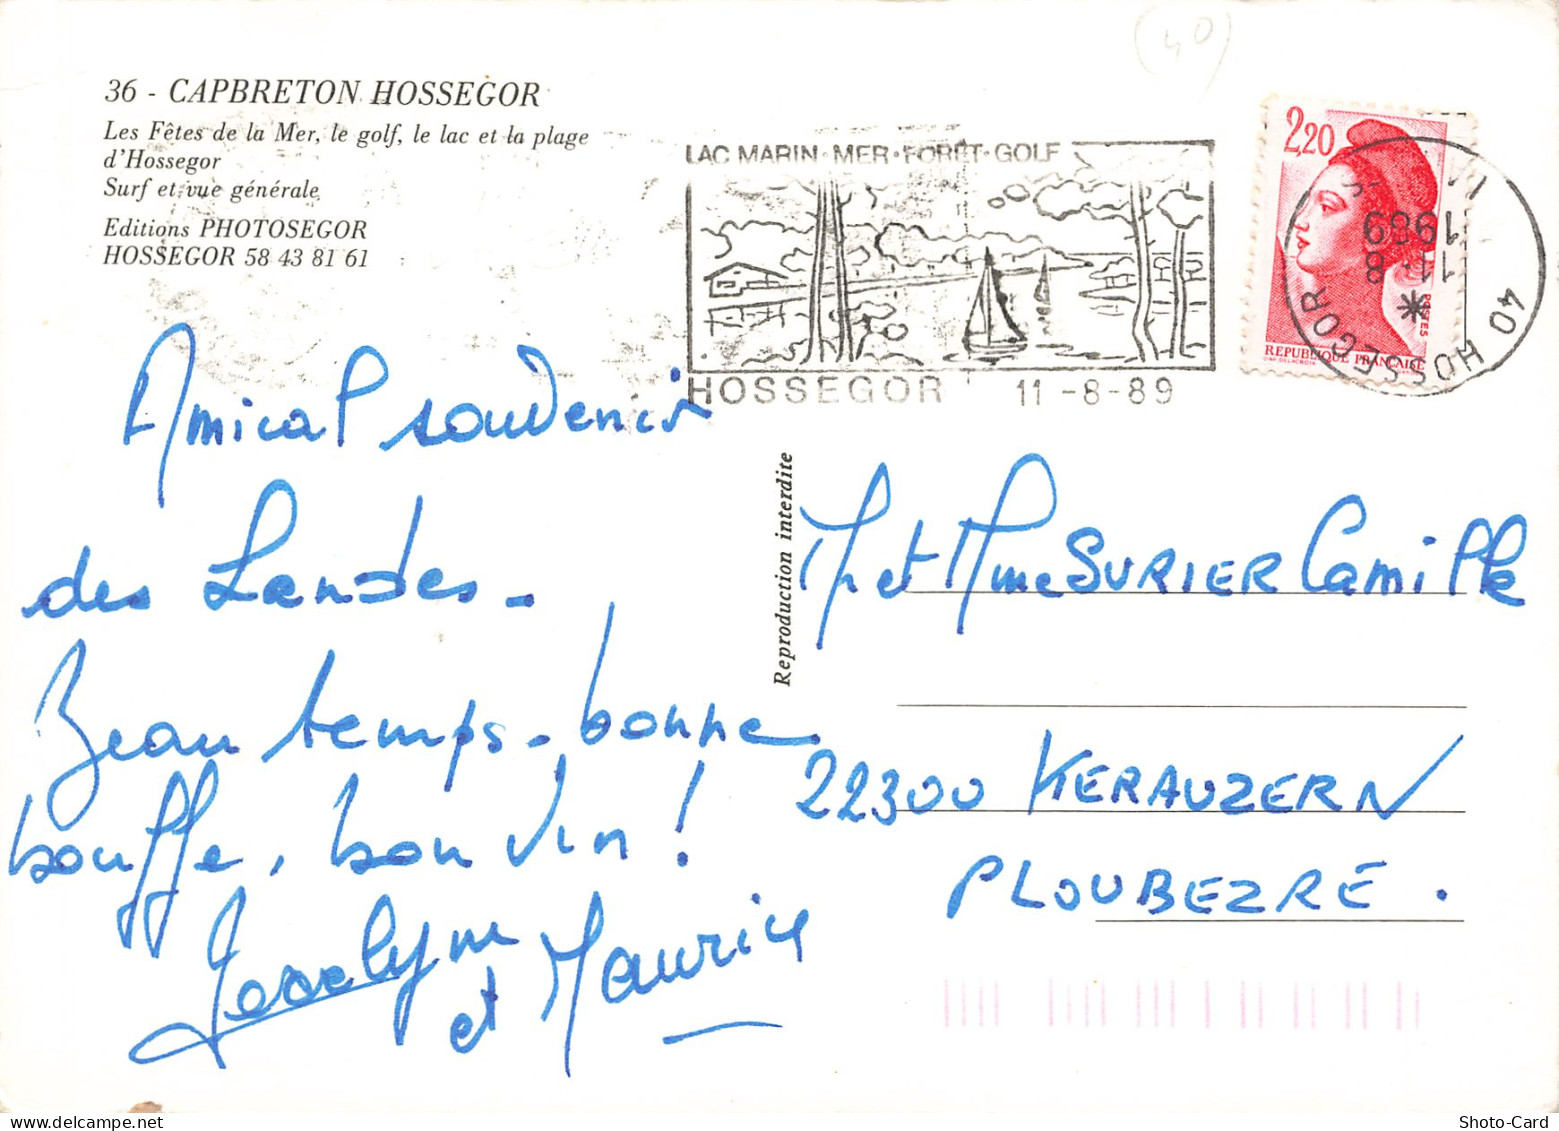 (40)
36 - CAPBRETON HOSSEGOR
Les Fêtes de la Mer, le golf, le lac et la plage
d'Hossegor
Surf et vue générale
Editions PHOTOSEGOR
HOSSEGOR 58 43 81 61
LAC MARIN·MER·FORÊT·GOLF
HOSSEGOR 11-8-89
2,20
POSTES
REPUBLIQUE FRANÇAISE
11
1989
11 8
*
40 HOSSEGOR
Amical souvenir
des Landes.
Beau temps - bonne
bouffe, bon vin !
Jocelyne
et Maurice
Reproduction interdite
M et Mme SURIER Camille
22300 KERAUZERN
PLOUBEZRE.
Shoto-Card